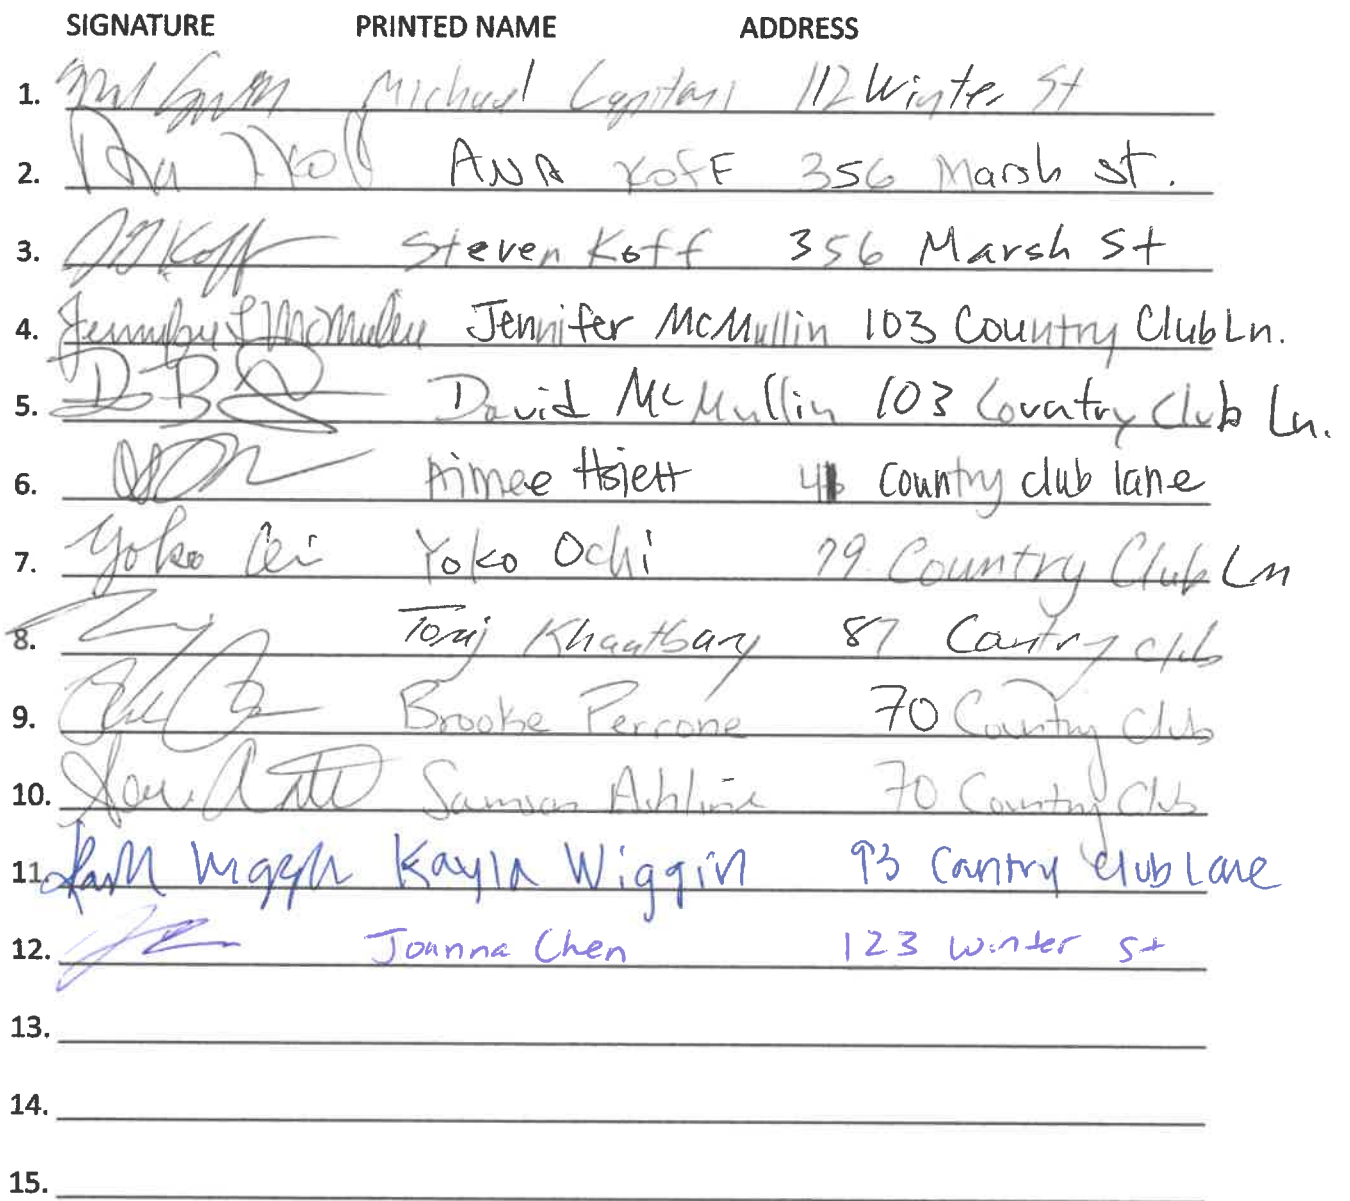 SIGNATURE PRINTED NAME ADDRESS
1. Michael Capitani 112 Winter St
2. ANA Koff 356 Marsh St.
3. Steven Koff 356 Marsh St
4. Jennifer L McMullin Jennifer McMullin 103 Country Club Ln.
5. David McMullin 103 Country Club Ln.
6. Aimee country club lane
7. Yoko Ochi Yoko Ochi 79 Country Club Ln
8. 87 Country club
9. Brooke Perrone 70 Country Club
10. 70 Country Club
11. Kayla Wiggin 93 Country Club Lane
12. Joanna Chen 123 Winter St
13.
14.
15.